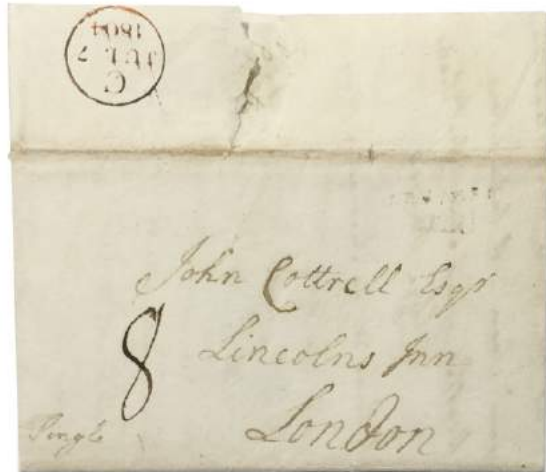 C
JUL 7
1804
John Cottrell Esqr
8
Lincolns Inn
London
Single